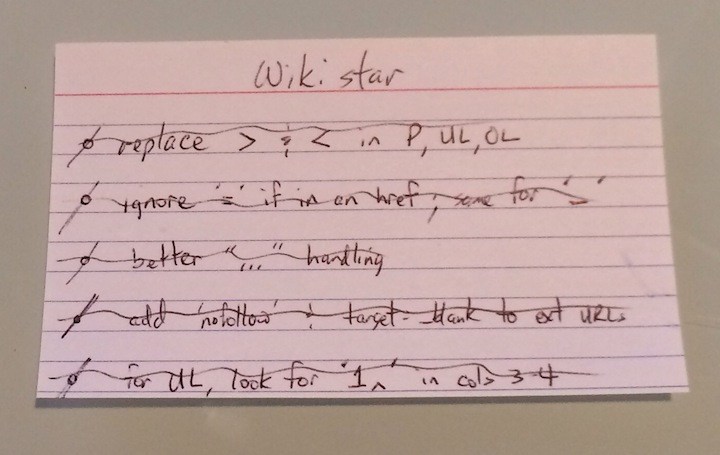 Wiki star
replace > & < in P, UL, OL
ignore '=' if in an href; same for '_'
better "..." handling
add 'nofollow' & target=_blank to ext URLs
for UL, look for '1.' in cols 3-4